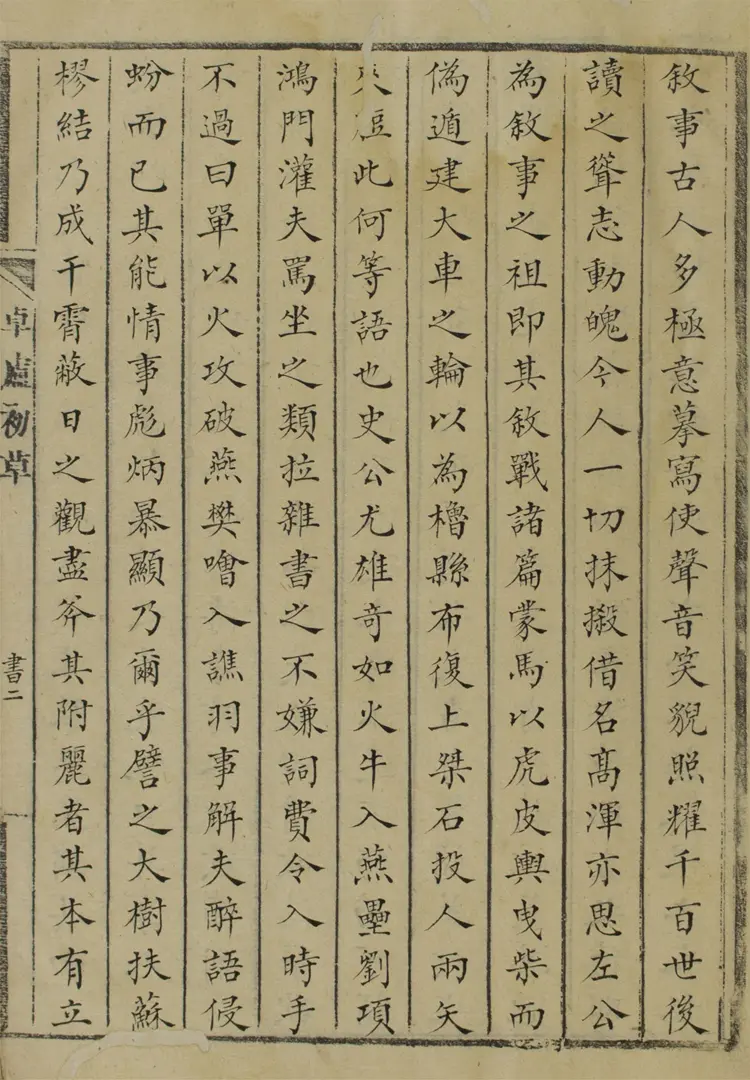 敘事古人多極意摹寫使聲音笑貌照耀千百世後
讀之聳志動魄今人一切抹摋借名高渾亦思左公
為敘事之祖即其敘戰諸篇蒙馬以虎皮輿曳柴而
偽遁建大車之輪以為櫓縣布復上桀石投人兩矢
夾脰此何等語也史公尤雄奇如火牛入燕壘劉項
鴻門灌夫罵坐之類拉雜書之不嫌詞費令入時手
不過曰單以火攻破燕樊噲入譙羽事解夫醉語侵
蚡而已其能情事彪炳暴顯乃爾乎譬之大樹扶蘇
樛結乃成干霄蔽日之觀盡斧其附麗者其本有立
卓廬初草
書二